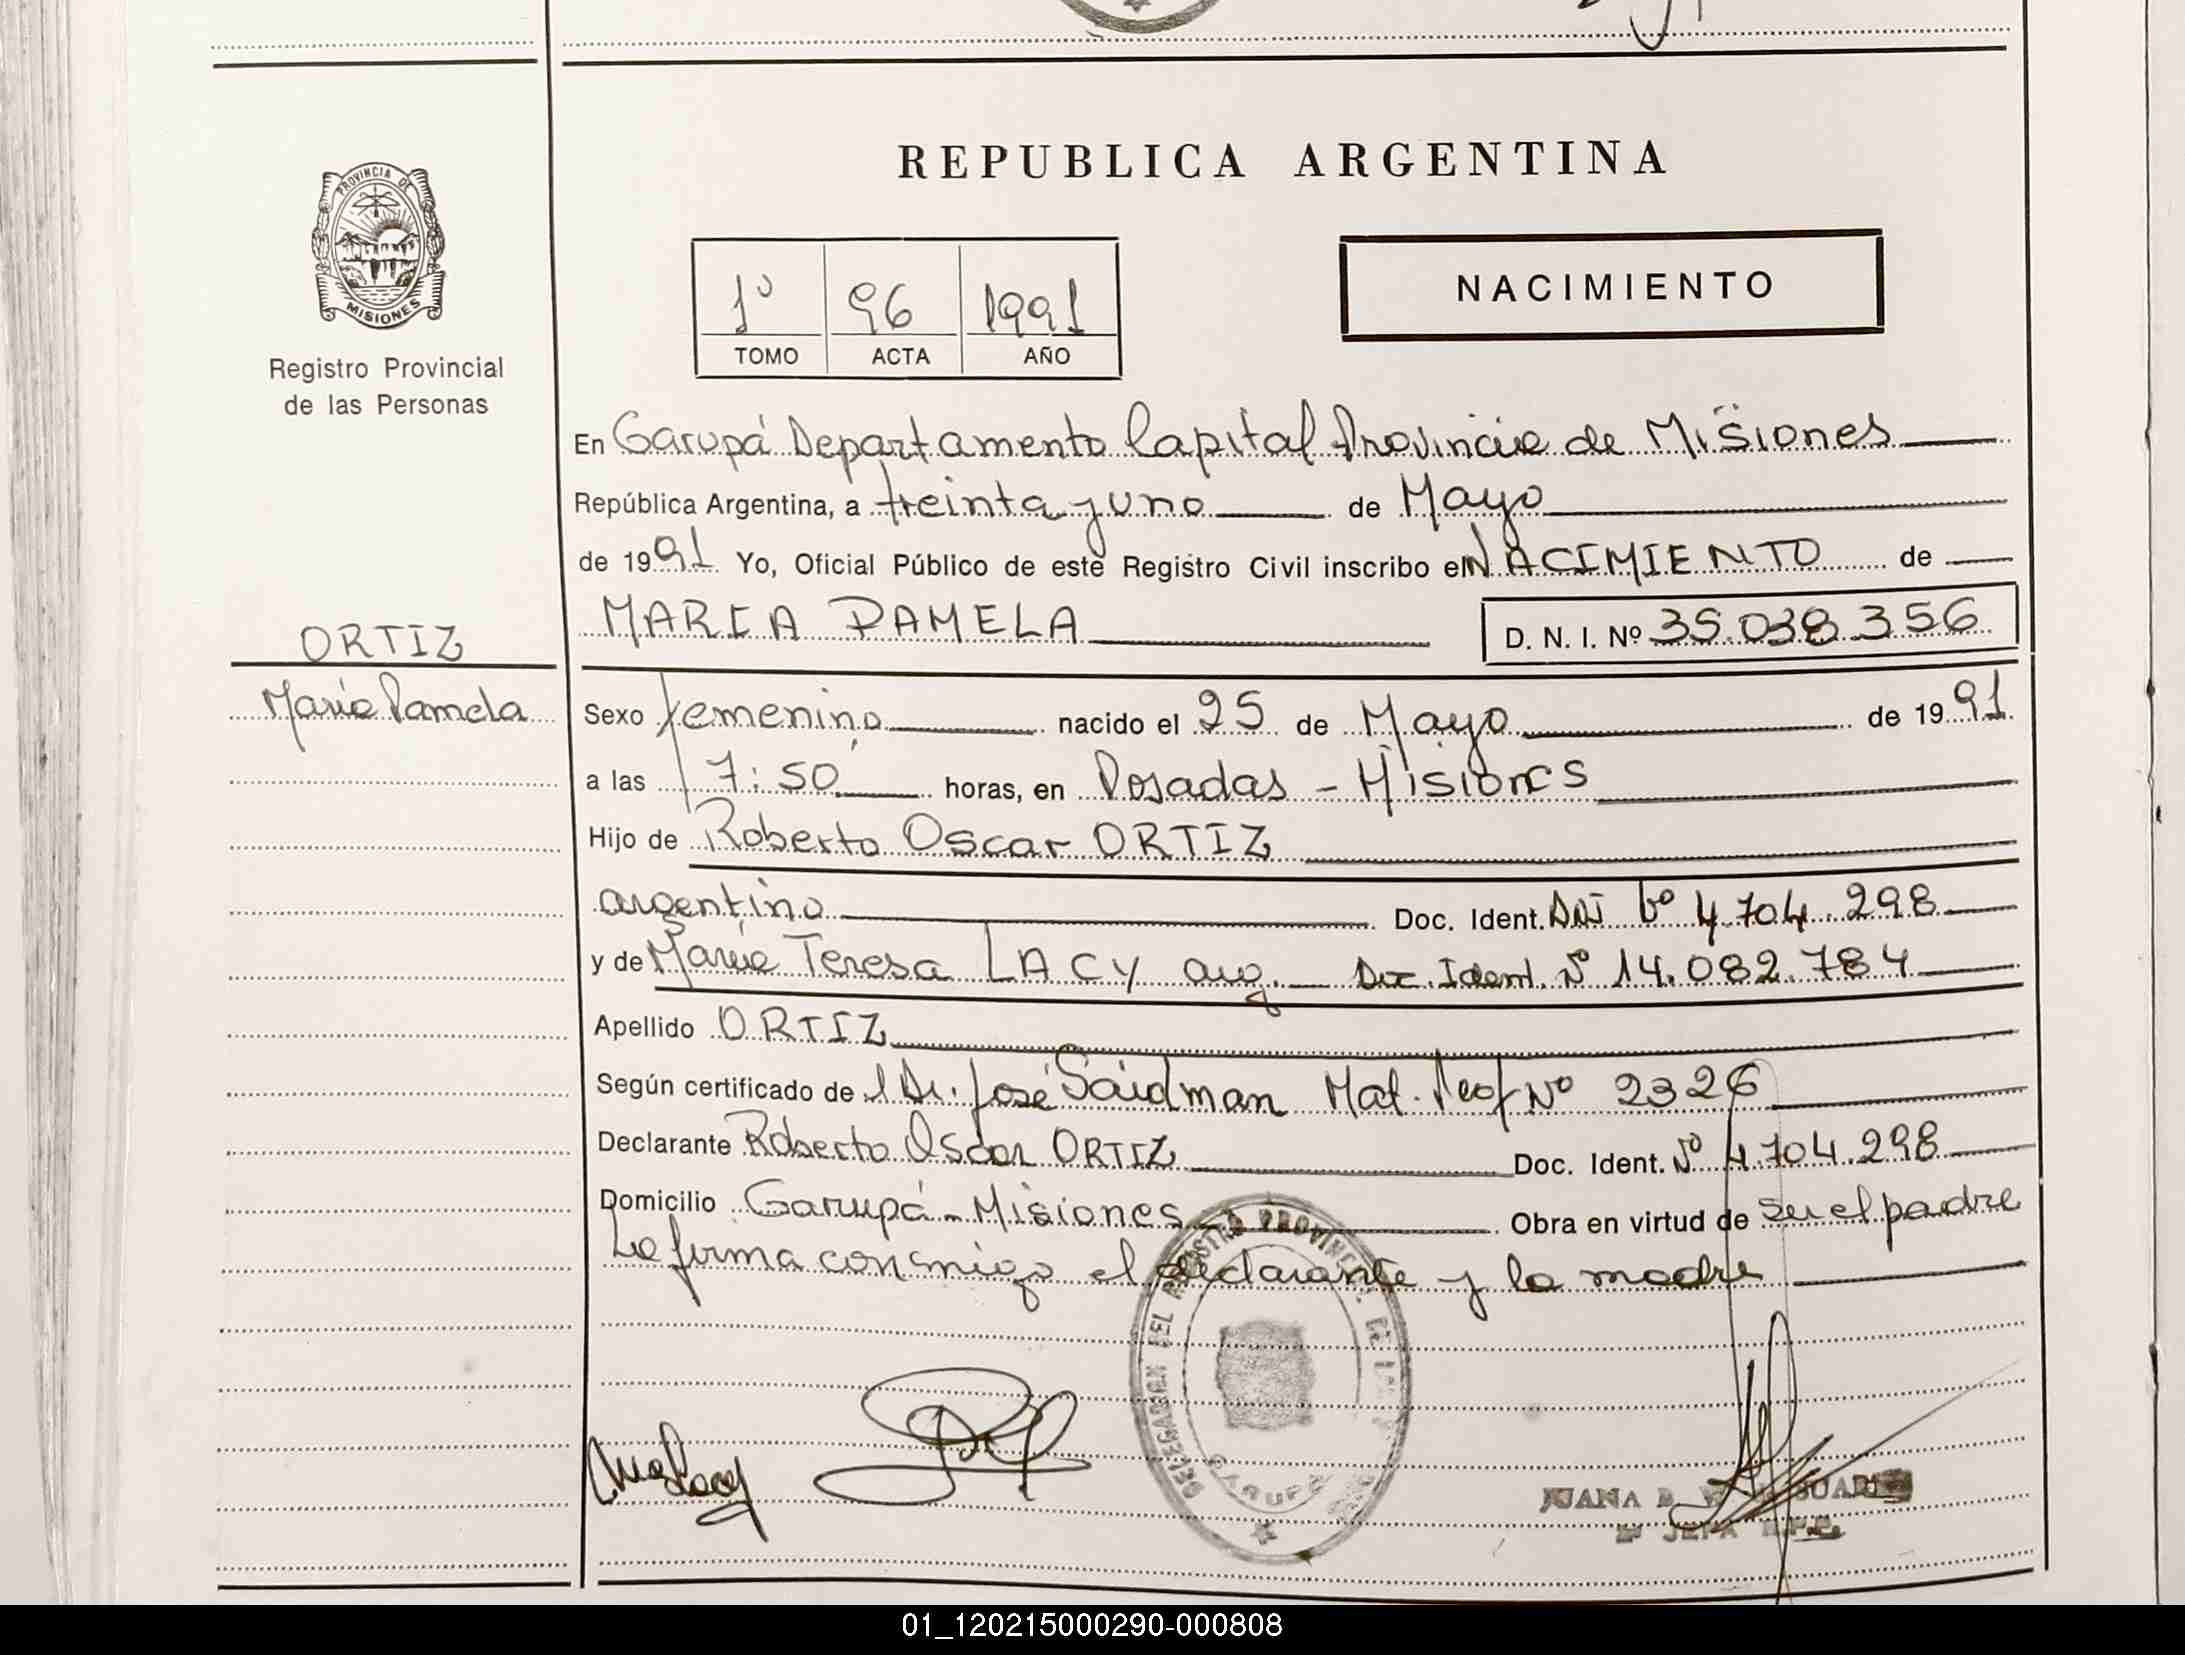 REPUBLICA ARGENTINA
PROVINCIA DE
MISIONES
Registro Provincial
de las Personas
1º 96 1991
TOMO ACTA AÑO
NACIMIENTO
En Garupá Departamento Capital Provincia de Misiones
República Argentina, a treinta y uno de Mayo
de 1991 Yo, Oficial Público de este Registro Civil inscribo el NACIMIENTO de
MARIA PAMELA D. N. I. Nº 35.038.356
ORTIZ
María Pamela
Sexo femenino nacido el 25 de Mayo de 1991
a las 7:50 horas, en Posadas - Misiones
Hijo de Roberto Oscar ORTIZ
argentino Doc. Ident. DNI Nº 4.704.298
y de María Teresa LACY arg. Doc. Ident. Nº 14.082.784
Apellido ORTIZ
Según certificado de l Dr. José Saidman Mat. Prof Nº 2326
Declarante Roberto Oscar ORTIZ Doc. Ident. Nº 4.704.298
Domicilio Garupá - Misiones Obra en virtud de ser el padre
La firma conmigo el declarante y la madre
DELEGACION DEL REGISTRO PROVINCIAL DE LAS
GARUPA
JUANA
JEFA
01_120215000290-000808